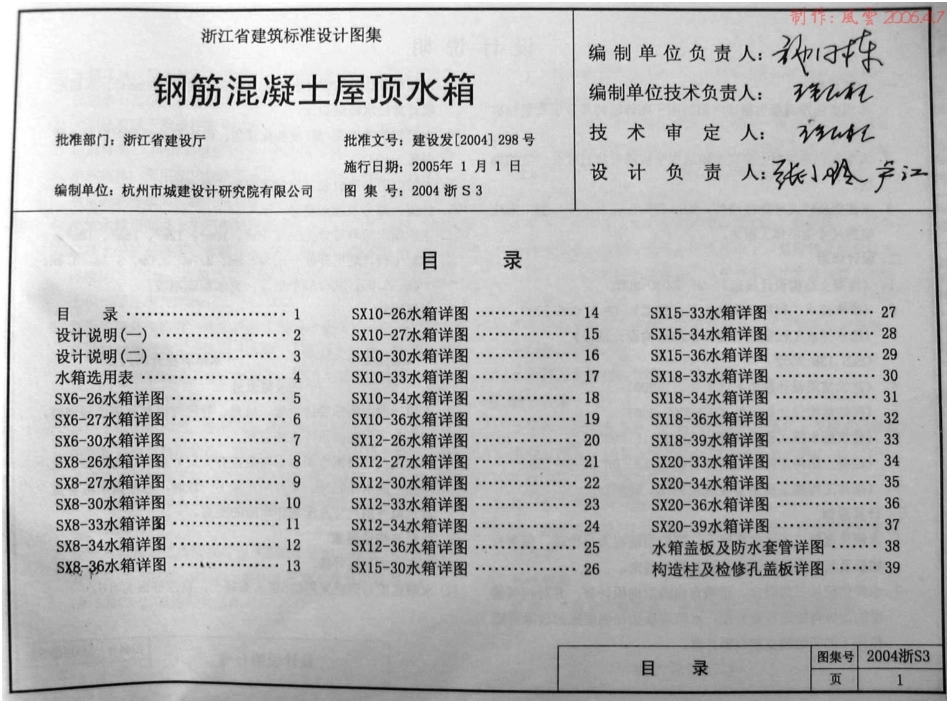 制作:風雲 2006.4.7
浙江省建筑标准设计图集
钢筋混凝土屋顶水箱
批准部门：浙江省建设厅
批准文号：建设发[2004]298号
施行日期：2005年1月1日
编制单位：杭州市城建设计研究院有限公司
图集号：2004浙S3
编制单位负责人：
编制单位技术负责人：
技术审定人：
设计负责人：张小玲 芦江
目 录
目 录 1
设计说明(一) 2
设计说明(二) 3
水箱选用表 4
SX6-26水箱详图 5
SX6-27水箱详图 6
SX6-30水箱详图 7
SX8-26水箱详图 8
SX8-27水箱详图 9
SX8-30水箱详图 10
SX8-33水箱详图 11
SX8-34水箱详图 12
SX8-36水箱详图 13
SX10-26水箱详图 14
SX10-27水箱详图 15
SX10-30水箱详图 16
SX10-33水箱详图 17
SX10-34水箱详图 18
SX10-36水箱详图 19
SX12-26水箱详图 20
SX12-27水箱详图 21
SX12-30水箱详图 22
SX12-33水箱详图 23
SX12-34水箱详图 24
SX12-36水箱详图 25
SX15-30水箱详图 26
SX15-33水箱详图 27
SX15-34水箱详图 28
SX15-36水箱详图 29
SX18-33水箱详图 30
SX18-34水箱详图 31
SX18-36水箱详图 32
SX18-39水箱详图 33
SX20-33水箱详图 34
SX20-34水箱详图 35
SX20-36水箱详图 36
SX20-39水箱详图 37
水箱盖板及防水套管详图 38
构造柱及检修孔盖板详图 39
目 录
图集号 2004浙S3
页 1